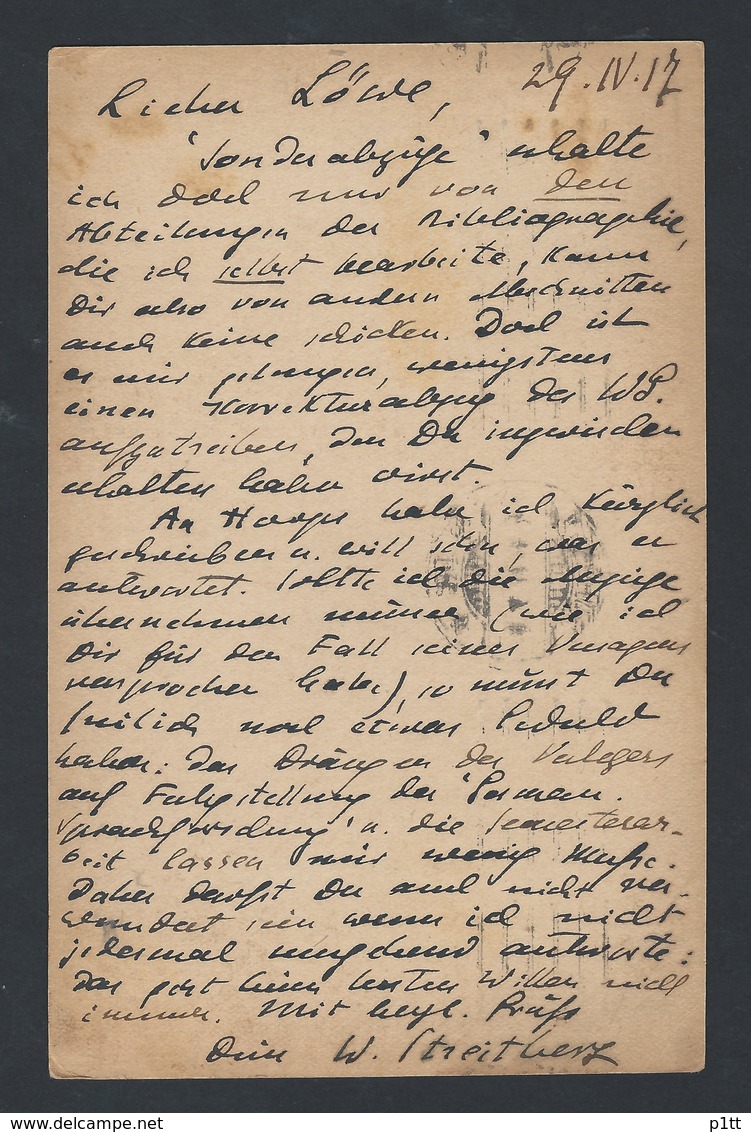 29.IV.17
Lieber Löwe,
'Sonderabzüge' erhalte
ich doch nur von den
Abteilungen der Bibliographie,
die ich selbst bearbeite, kann
Dir also von andern Abschnitten
auch keine schicken. Doch ist
es mir gelungen, wenigstens
einen Korrekturabzug des WB.
aufzutreiben, den Du inzwischen
erhalten haben wirst.
An Hoops habe ich kürzlich
geschrieben u. will sehn, was er
antwortet. Sollte ich die Anzeige
übernehmen müssen (wie ich
Dir für den Fall seines Versagens
versprochen habe), so müsst Du
freilich noch etwas Geduld
haben: das Drängen des Verlegers
auf Fertigstellung der 'German.
Sprachforschung' u. die Semesterar-
beit lassen mir wenig Musse.
Daher darfst Du auch nicht ver-
wundert sein wenn ich nicht
jedesmal umgehend antworte:
das geht beim besten Willen nicht
immer. Mit herzl. Grüss
Dein W. Streitberg
p1tt
delcampe.net